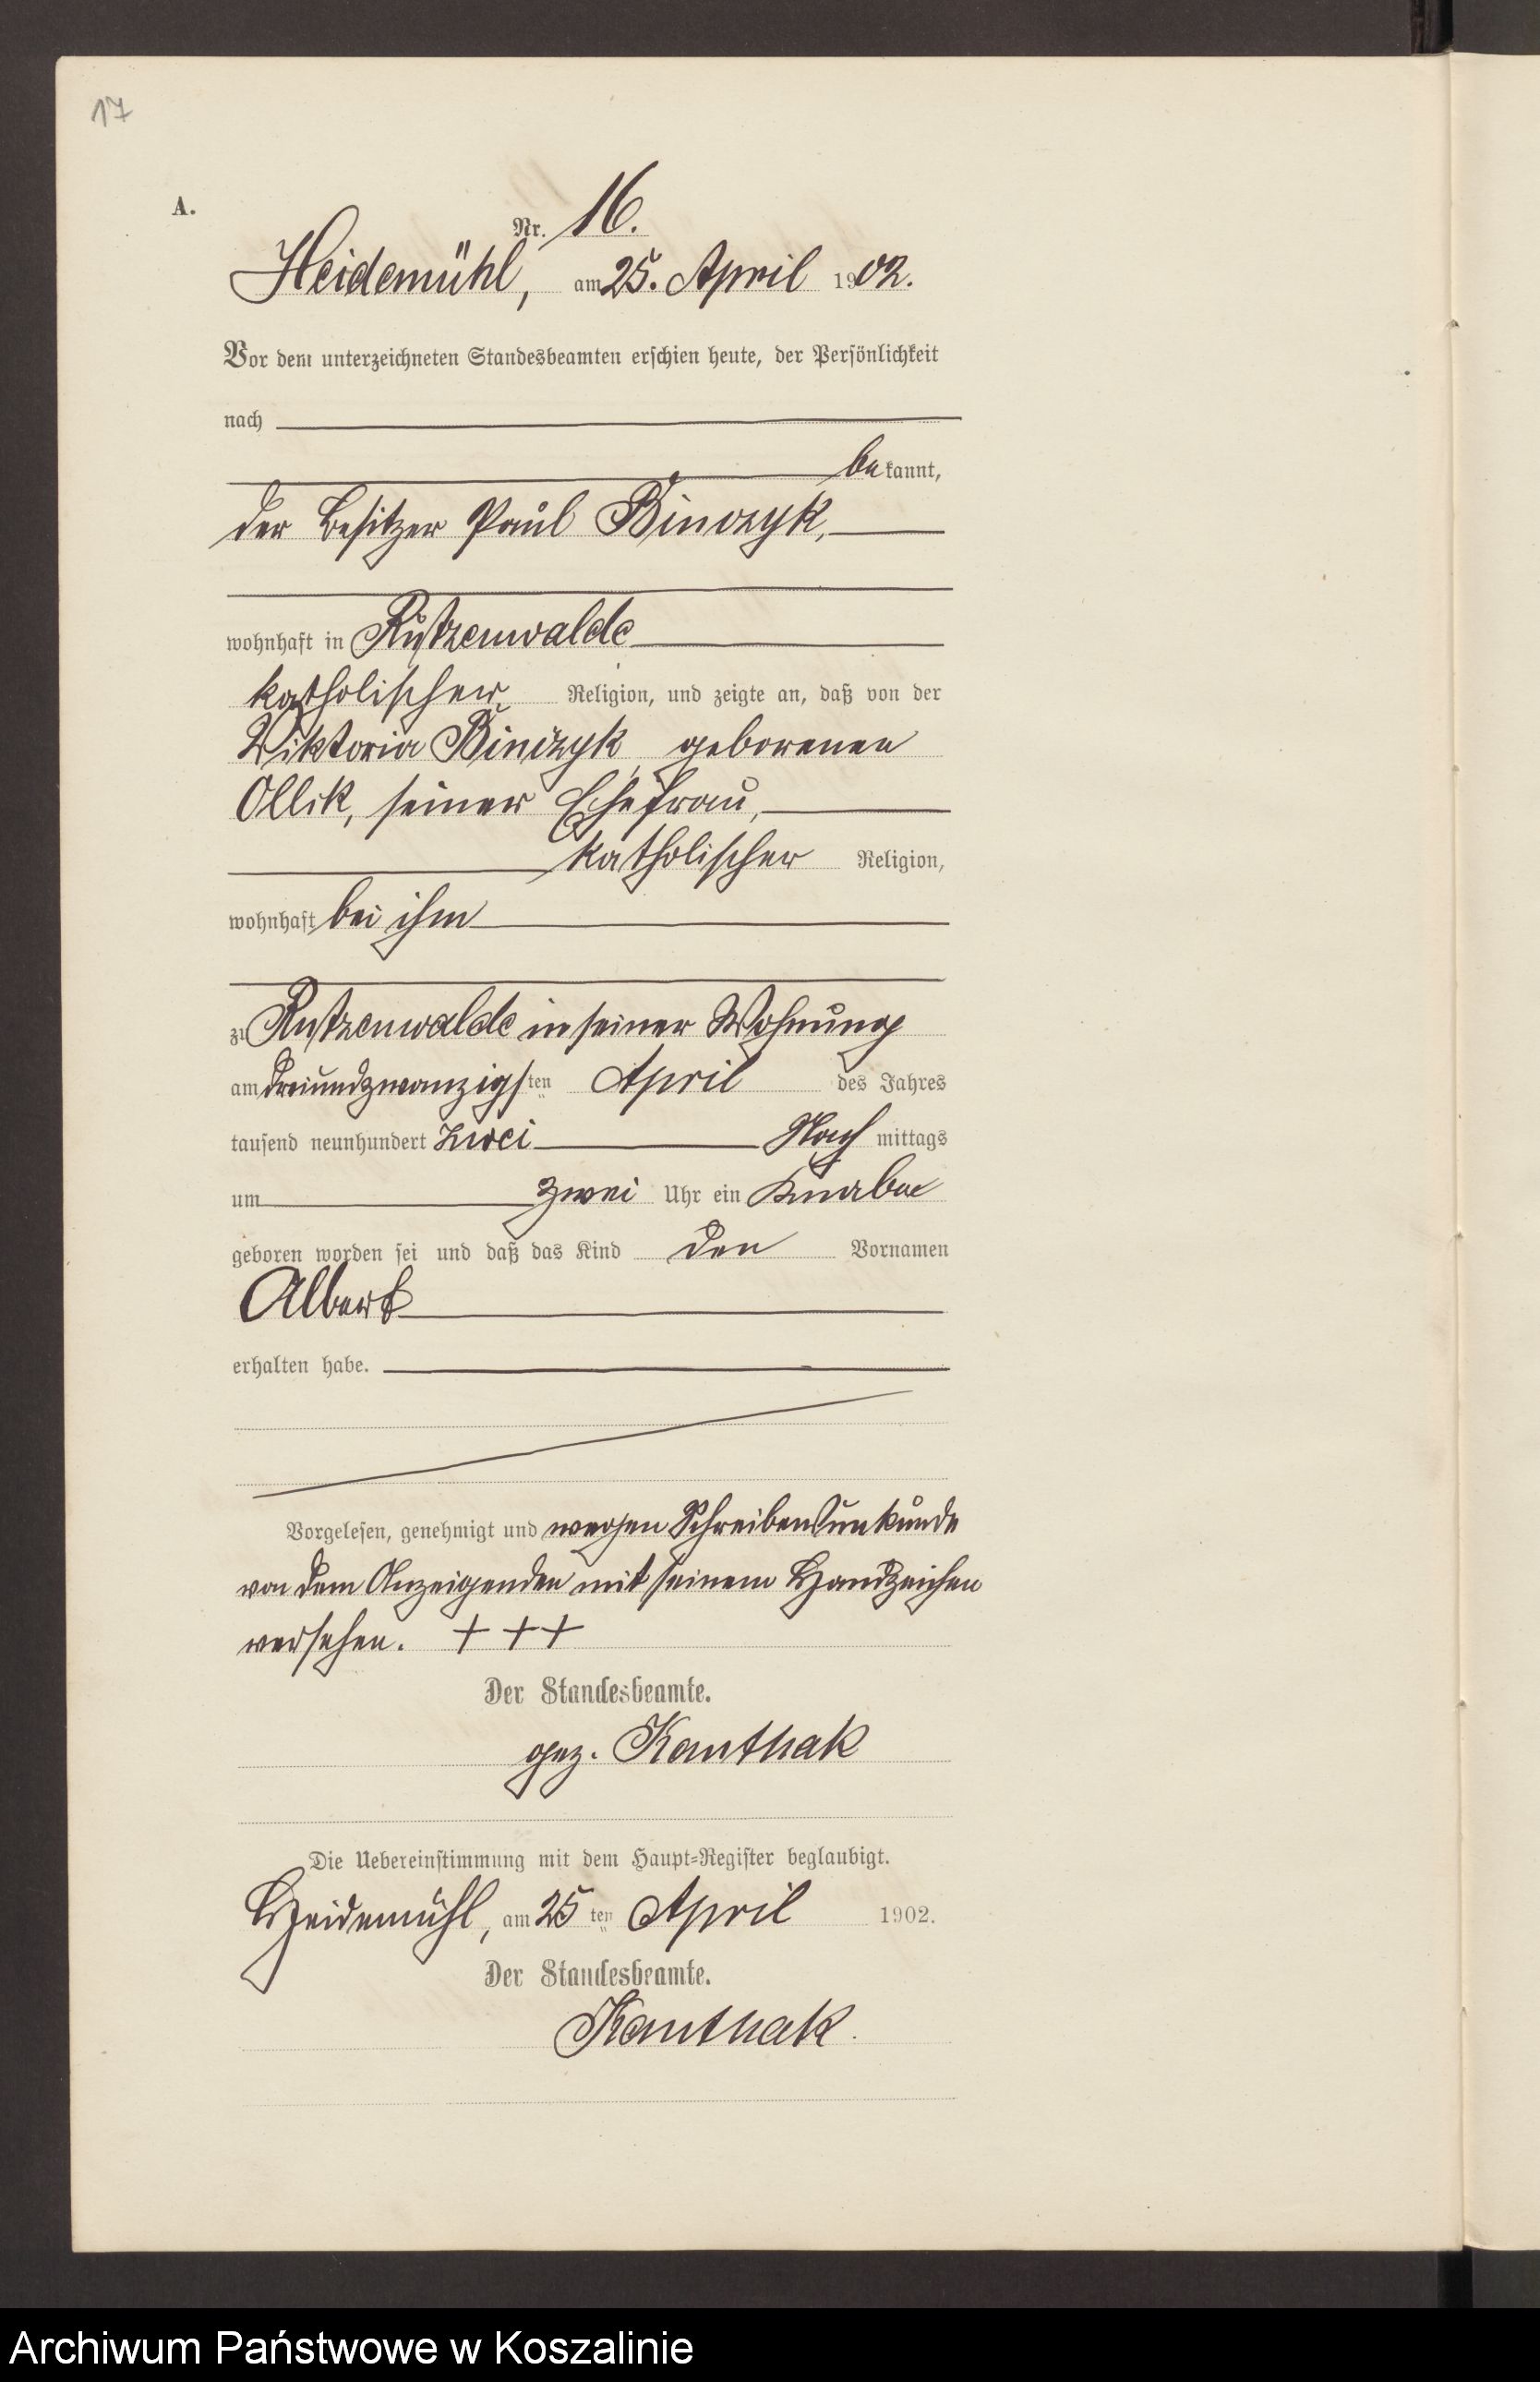 17
A.
Nr. 16.
Heidemühl, am 25. April 1902.
Vor dem unterzeichneten Standesbeamten erschien heute, der Persönlichkeit
nach
bekannt,
der Besitzer Paul Binczyk,
wohnhaft in Rutzenwalde
katholischer Religion, und zeigte an, daß von der
Viktoria Binczyk, geborenen
Ollik, seiner Ehefrau,
katholischer Religion,
wohnhaft bei ihm
zu Rutzenwalde in seiner Wohnung
am dreiundzwanzigsten April des Jahres
tausend neunhundert zwei Nachmittags
um zwei Uhr ein Knabe
geboren worden sei und daß das Kind den Vornamen
Albert
erhalten habe.
Vorgelesen, genehmigt und wegen Schreibensunkunde
von dem Anzeigenden mit seinem Handzeichen
versehen. + + +
Der Standesbeamte.
gez. Kanthak
Die Uebereinstimmung mit dem Haupt-Register beglaubigt.
Heidemühl, am 25ten April 1902.
Der Standesbeamte.
Kanthak.
Archiwum Państwowe w Koszalinie